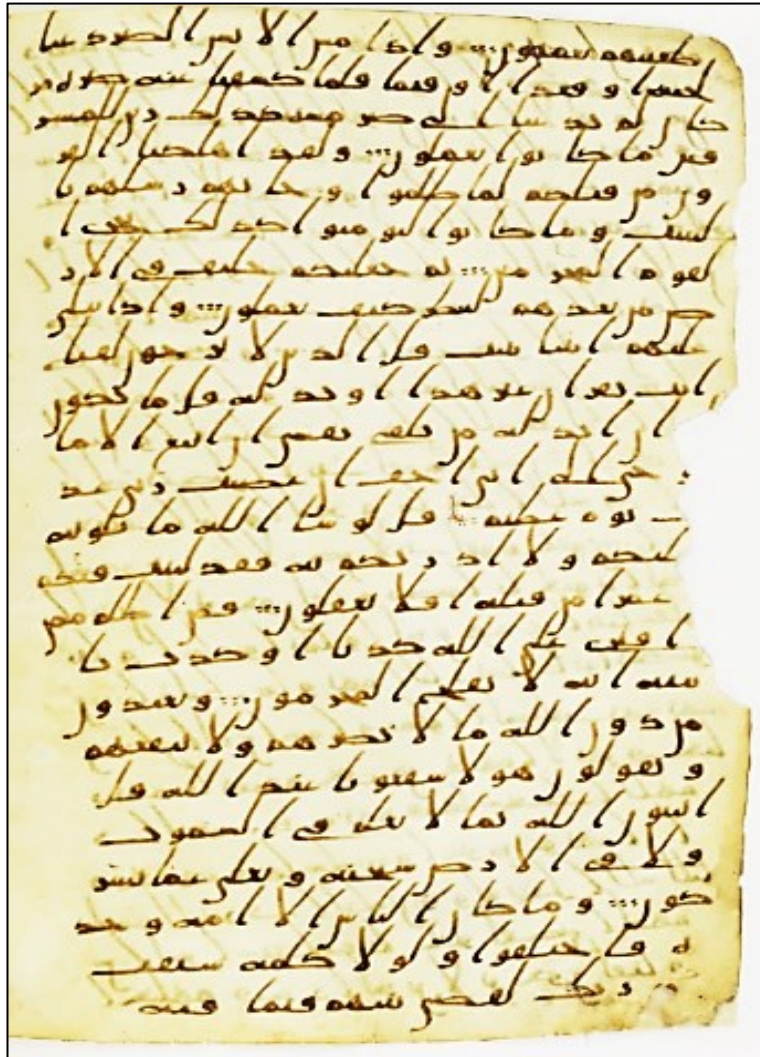 طغينهم يعمهون ۝ واذا مس الانسن الضر دعنا
لجنبه او قعدا او قيما فلما كشفنا عنه ضره مر
كان لم يدعنا الى ضر مسه كذلك زين للمسر
فين ما كانوا يعملون ۝ ولقد اهلكنا القر
ون من قبلكم لما ظلموا وجاتهم رسلهم با
لبينت وما كانوا ليومنوا كذلك نجزي ا
لقوم المجرمين ۝ ثم جعلنكم خليف في الار
ض من بعدهم لننظر كيف تعملون ۝ واذا تتلى
عليهم اياتنا بينت قل الذين لا يرجون لقنا
ايت بقران غير هذا او بدله قل ما يكون
ان ابدله من تلقى نفسي ان اتبع الا ما
حى الي اني اخف ان عصيت ربي عذ
ب يوم عظيم قل لو شا الله ما تلوته
عليكم ولا ادريكم به فقد لبثت فيكم
عمرا من قبله افلا تعقلون ۝ فمن اظلم ممن
افترى على الله كذبا او كذب با
يته انه لا يفلح المجرمون ۝ ويعبدون
من دون الله ما لا يضرهم ولا ينفعهم
ويقولون هولا شفعونا عند الله قل
اتنبون الله بما لا يعلم في السموت
ولا في الارض سبحنه وتعلى عما يشر
كون ۝ وما كان الناس الا امه وحد
ه فاختلفوا ولولا كلمه سبقت
ربك لقضي بينهم فيما فيه